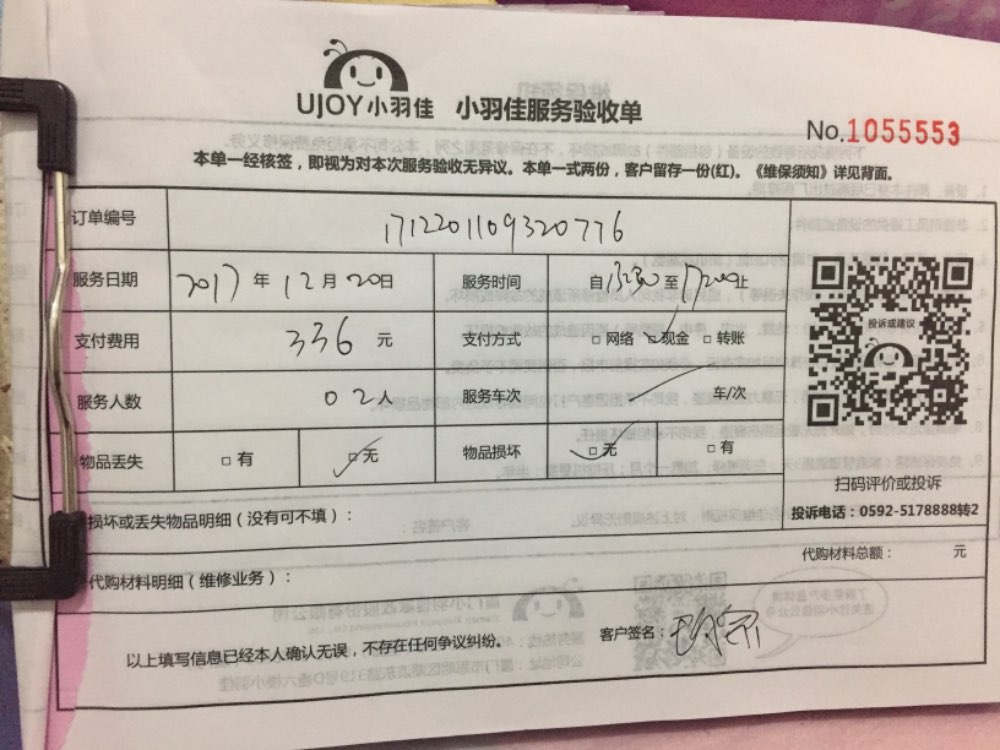 UJOY小羽佳 小羽佳服务验收单
No.1055553
本单一经核签，即视为对本次服务验收无异议。本单一式两份，客户留存一份(红)。《维保须知》详见背面。
订单编号 171220110932077​6
服务日期 2017年12月20日 服务时间 自13:30至17:00止
支付费用 336元 支付方式 □网络 ☑现金 □转账
服务人数 02人 服务车次 车/次
物品丢失 □有 ☑无 物品损坏 ☑无 □有
投诉或建议
扫码评价或投诉
投诉电话：0592-5178888转2
损坏或丢失物品明细（没有可不填）：
代购材料总额： 元
代购材料明细（维修业务）：
以上填写信息已经本人确认无误，不存在任何争议纠纷。
客户签名：